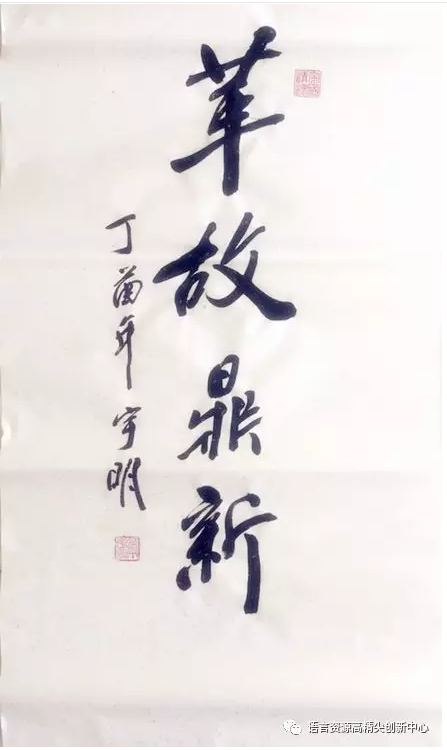 革故鼎新
丁酉年 宇明
语言资源高精尖创新中心